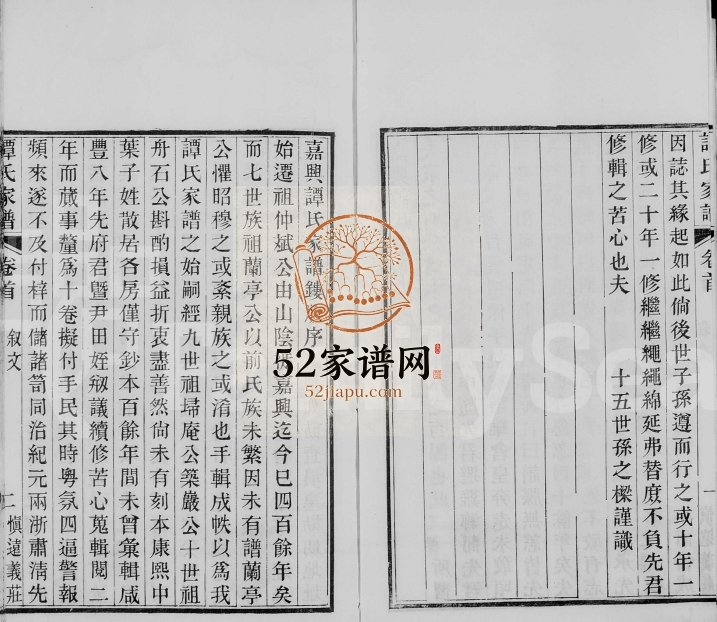 因誌其緣起如此倘後世子孫遵而行之或十年一
修或二十年一修繼繼繩繩綿延弗替庶不負先君
修輯之苦心也夫　十五世孫之樑謹識
嘉興譚氏家譜鏤序
始遷祖仲斌公由山陰遷嘉興迄今已四百餘年矣
而七世族祖蘭亭公以前氏族未繁因未有譜蘭亭
公懼昭穆之或紊親族之或淆也手輯成帙以為我
譚氏家譜之始嗣經九世祖埽庵公築巖公十世祖
舟石公斟酌損益折衷盡善然尙未有刻本康熙中
葉子姓散居各房僅守鈔本百餘年間未曾彙輯咸
豐八年先府君暨尹田姪叔議續修苦心蒐輯閱二
年而蕆事釐爲十卷擬付手民其時粵氛四逼警報
頻來遂不及付梓而儲諸笥同治紀元兩浙肅淸先
譚氏家譜　卷首　叙文　二　愼遠義莊
52家谱网
52jiapu.com